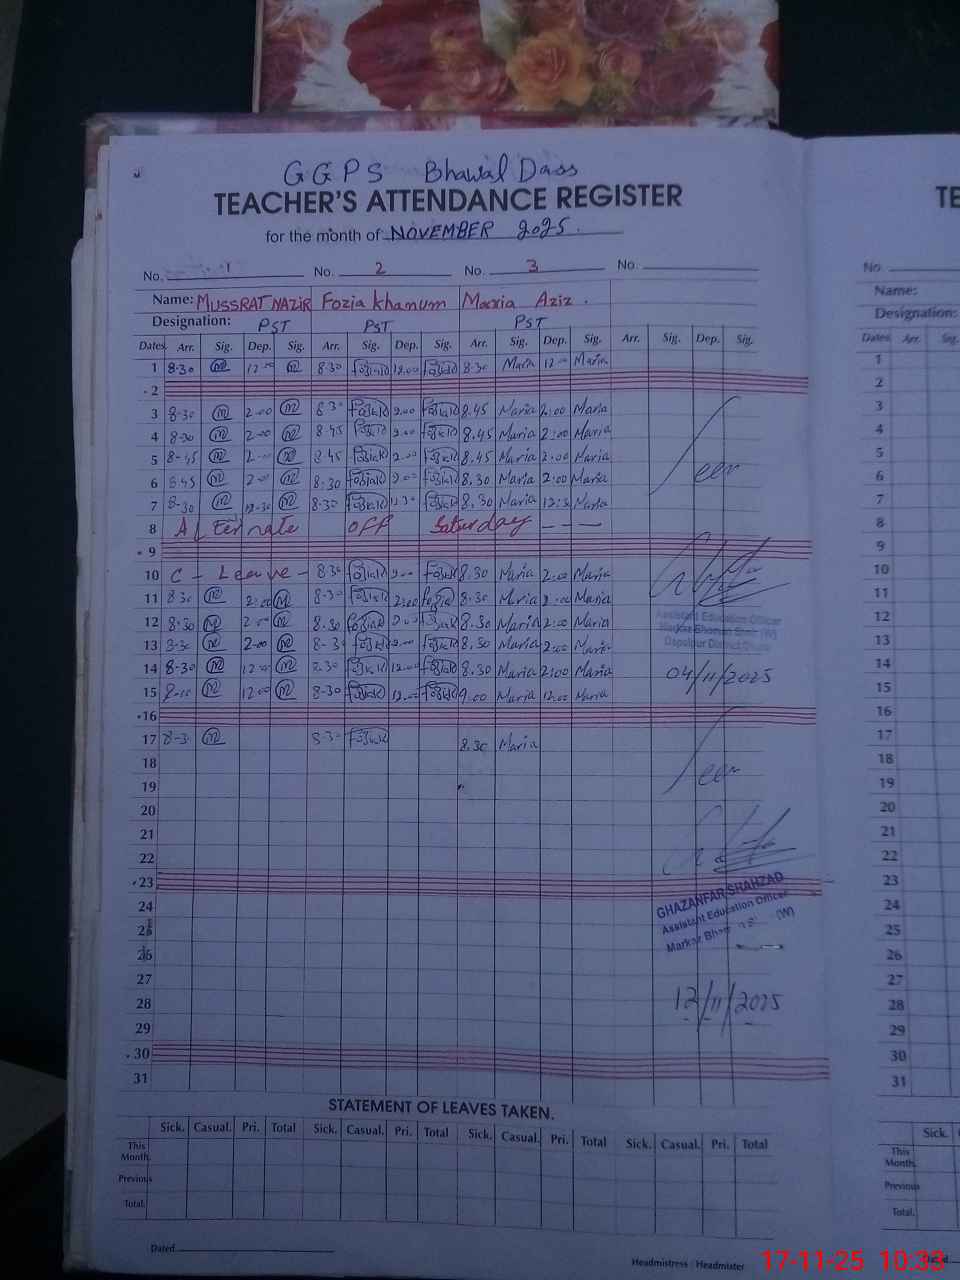 GGPS Bhawal Dass
TEACHER'S ATTENDANCE REGISTER
for the month of NOVEMBER 2025.
No. 1 No. 2 No. 3 No.
Name: MUSSRAT NAZIR Fozia Khanum Maria Aziz.
Designation: PST PST PST
Dates Arr. Sig. Dep. Sig. Arr. Sig. Dep. Sig. Arr. Sig. Dep. Sig. Arr. Sig. Dep. Sig.
1 8-30 m 12-00 m 8-30 12.00 8-30 Maria 12-00 Maria
2
3 8-30 m 2-00 m 8-30 2.00 8.45 Maria 2:00 Maria
4 8-30 m 2-00 m 8-45 2.00 8.45 Maria 2:00 Maria
5 8-45 m 2-00 m 8.45 2.00 8.45 Maria 2:00 Maria
6 8.45 m 2-00 m 8:30 2.00 8.30 Maria 2:00 Maria
7 8-30 m 12-30 m 8-30 12.30 8.30 Maria 12:30 Maria
8 Alternate OFF Saturday
9
10 C - Leave - 8-30 2.00 8.30 Maria 2:00 Maria
11 8-30 m 2:00 m 8-30 2:00 8.30 Maria 2:00 Maria
12 8-30 m 2-00 m 8.30 2.00 8.30 Maria 2:00 Maria
13 8-30 m 2-00 m 8-30 2.00 8.30 Maria 2:00 Maria
14 8-30 m 12-00 m 8.30 12.00 8.30 Maria 2:00 Maria
15 m 12-00 m 8-30 12.00 9.00 Maria 12.00 Maria
16
17 8-30 m 8-30 8.30 Maria
18
19
20
21
22
23
24
25
26
27
28
29
30
31
Seen
Assistant Education Officer
04/11/2025
Seen
GHAZANFAR SHAHZAD
Assistant Education Officer
Markaz (W)
12/11/2025
STATEMENT OF LEAVES TAKEN.
Sick. Casual. Pri. Total Sick. Casual. Pri. Total Sick. Casual. Pri. Total Sick. Casual. Pri. Total
This Month.
Previous
Total.
Dated
Headmistress / Headmister
TE
No.
Name:
Designation:
Dates Arr. Sig.
1
2
3
4
5
6
7
8
9
10
11
12
13
14
15
16
17
18
19
20
21
22
23
24
25
26
27
28
29
30
31
Sick.
This Month.
Previous
Total.
Dated
17-11-25 10:33